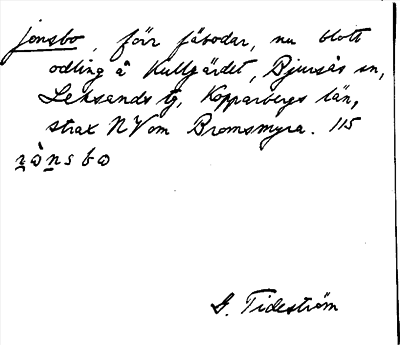 jonsbo, förr fäbodar, nu blott
odling å Kullgärdet, Bjursås sn,
Leksands tg, Kopparbergs län,
strax NV om Bromsmyra. 115
G. Tideström